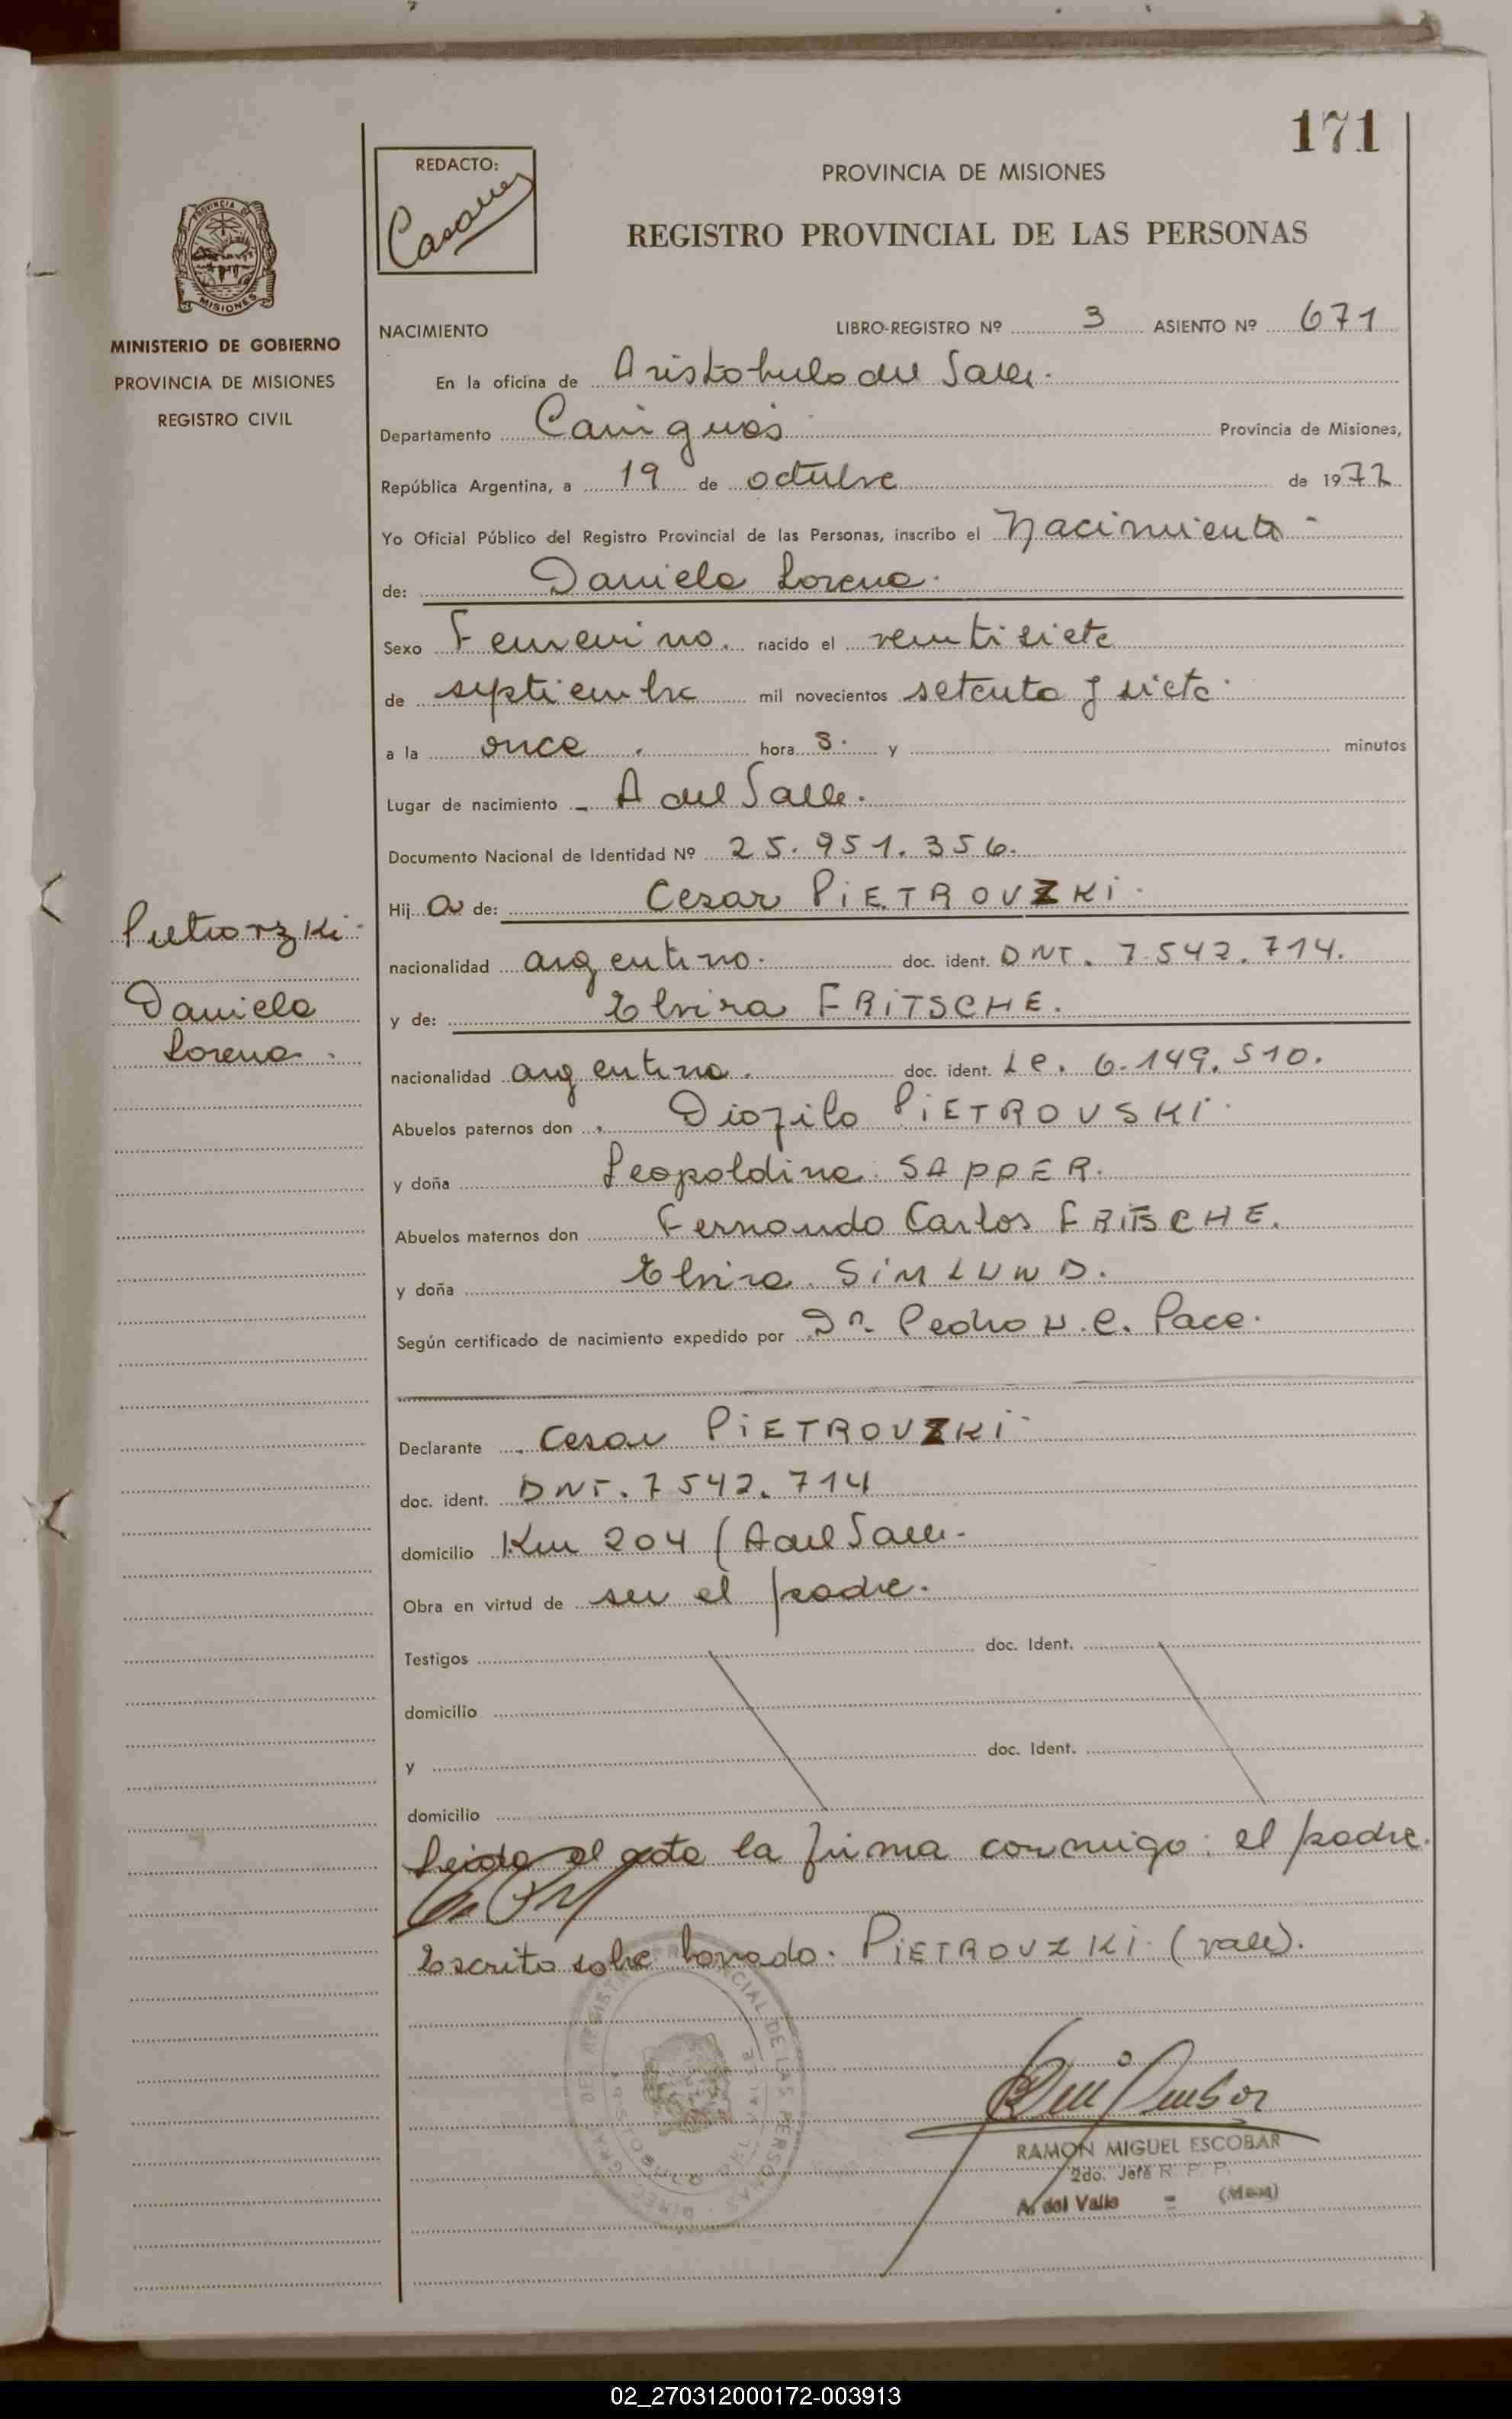 171
REDACTO:
PROVINCIA DE MISIONES
REGISTRO PROVINCIAL DE LAS PERSONAS
MISIONES
MINISTERIO DE GOBIERNO
PROVINCIA DE MISIONES
REGISTRO CIVIL
NACIMIENTO LIBRO-REGISTRO Nº 3 ASIENTO Nº 671
En la oficina de Aristobulo del Valle.
Departamento Cainguás Provincia de Misiones,
República Argentina, a 19 de octubre de 1977
Yo Oficial Público del Registro Provincial de las Personas, inscribo el Nacimiento
de: Daniela Lorena.
Sexo Femenino. nacido el veintisiete
de septiembre mil novecientos setenta y siete.
a la once hora s. y minutos
Lugar de nacimiento - A del Valle.
Documento Nacional de Identidad Nº 25.951.356.
Hij a de: Cesar PiETROVZKi
nacionalidad argentino. doc. ident. DNI. 7.542.714.
y de: Elvira FRiTSCHE.
nacionalidad argentina. doc. ident. LC. 6.149.510.
Abuelos paternos don PiETROVSKI
y doña Leopoldina SAPPER.
Abuelos maternos don Fernando Carlos FRiTSCHE.
y doña Elvira SiMLUND.
Según certificado de nacimiento expedido por Dr. Pedro H.C. Pace.
Declarante Cesar PiETROVZKi
doc. ident. DNI. 7542.714
domicilio Km 204 (A del Valle.
Obra en virtud de ser el padre.
Testigos doc. Ident.
domicilio
y doc. Ident.
domicilio
Leida el acta la firma conmigo: el padre.
Escrito sobre borrado: PiETROVZKi (vale).
Daniela
Lorena.
RAMON MIGUEL ESCOBAR
2do. Jefe R. P. P.
A. del Valle - (Mnes)
02_270312000172-003913